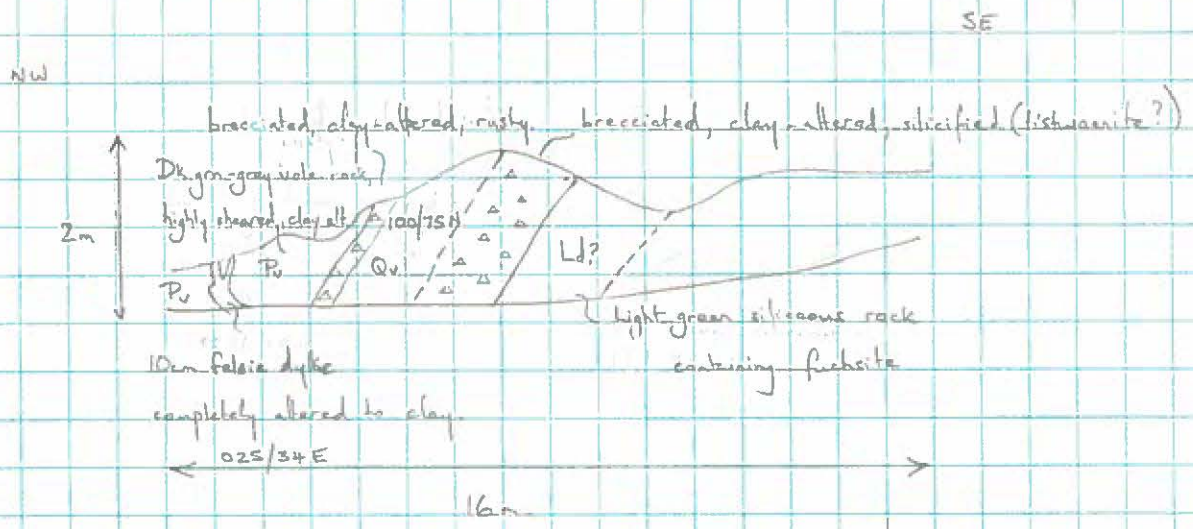 SE
NW
brecciated, clay-altered, rusty. brecciated, clay-altered, silicified (listwaenite?)
Dk grn-grey volc rock,
highly sheared, clay alt.
100/75N
2m
Pv
Pv
Qv
Ld?
Light green siliceous rock
containing fuchsite
10cm felsic dyke
completely altered to clay.
025/34E
16m